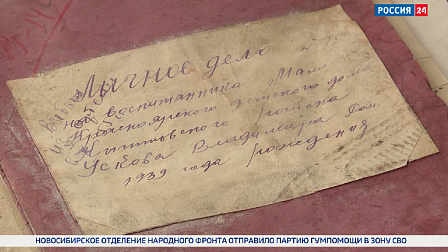 РОССИЯ 24
Личное дело
на воспитанника Мало
Красноярского детского дома
Кыштовского района
Ускова Владимира
1939 года рождения
НОВОСИБИРСКОЕ ОТДЕЛЕНИЕ НАРОДНОГО ФРОНТА ОТПРАВИЛО ПАРТИЮ ГУМПОМОЩИ В ЗОНУ СВО